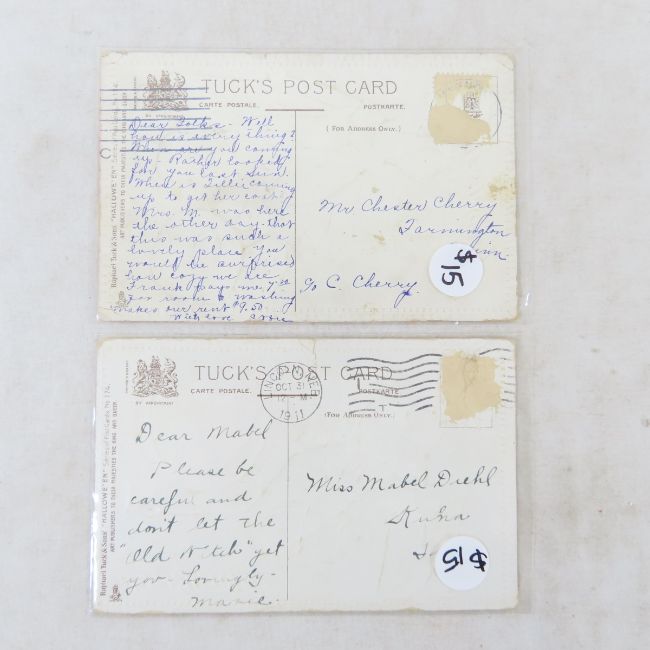 TUCK'S POST CARD
CARTE POSTALE.
POSTKARTE.
BY APPOINTMENT
(For Address Only.)
Raphael Tuck & Sons' "HALLOWE'EN" Series of Post Cards No. 174.
ART PUBLISHERS TO THEIR MAJESTIES THE KING AND QUEEN
Dear Folks - Well
how is everything?
When are you coming
up - Rather looked
for you last Sun.
When is Tillie coming
up to get her coat?
Mrs. M. was here
the other day that
this was such a
lovely place you
would be surprised
how cozy we are
Frank pays me 7.50
for room & washing
makes our rent $9.50.
With love
Mr Chester Cherry
Farmington
inn.
c/o C. Cherry.
$15
TUCK'S POST CARD
CARTE POSTALE.
POSTKARTE
BY APPOINTMENT
(For Address Only.)
Raphael Tuck & Sons' "HALLOWE'EN" Series of Post Cards No. 174.
ART PUBLISHERS TO THEIR MAJESTIES THE KING AND QUEEN
OCT 31
12 M
1911
Dear Mabel
Please be
careful and
don't let the
"Old Witch" get
you - Lovingly -
Marie.
Miss Mabel Diehl
Kuna
$15